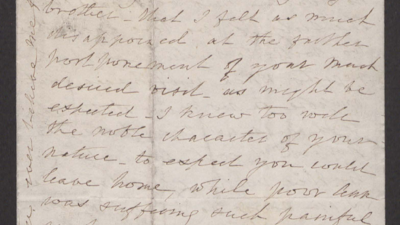 brother that I felt as much
disappoined at the further
postponement of your much
desired visit - as might be
expected - I knew too well
the noble character of your
nature - to expect you could
leave home, while poor
was suffering such painful